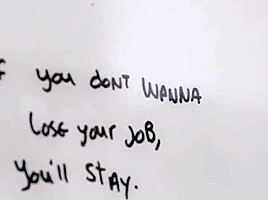 f you dont WANNA
lose your JOB,
you'll stAy.